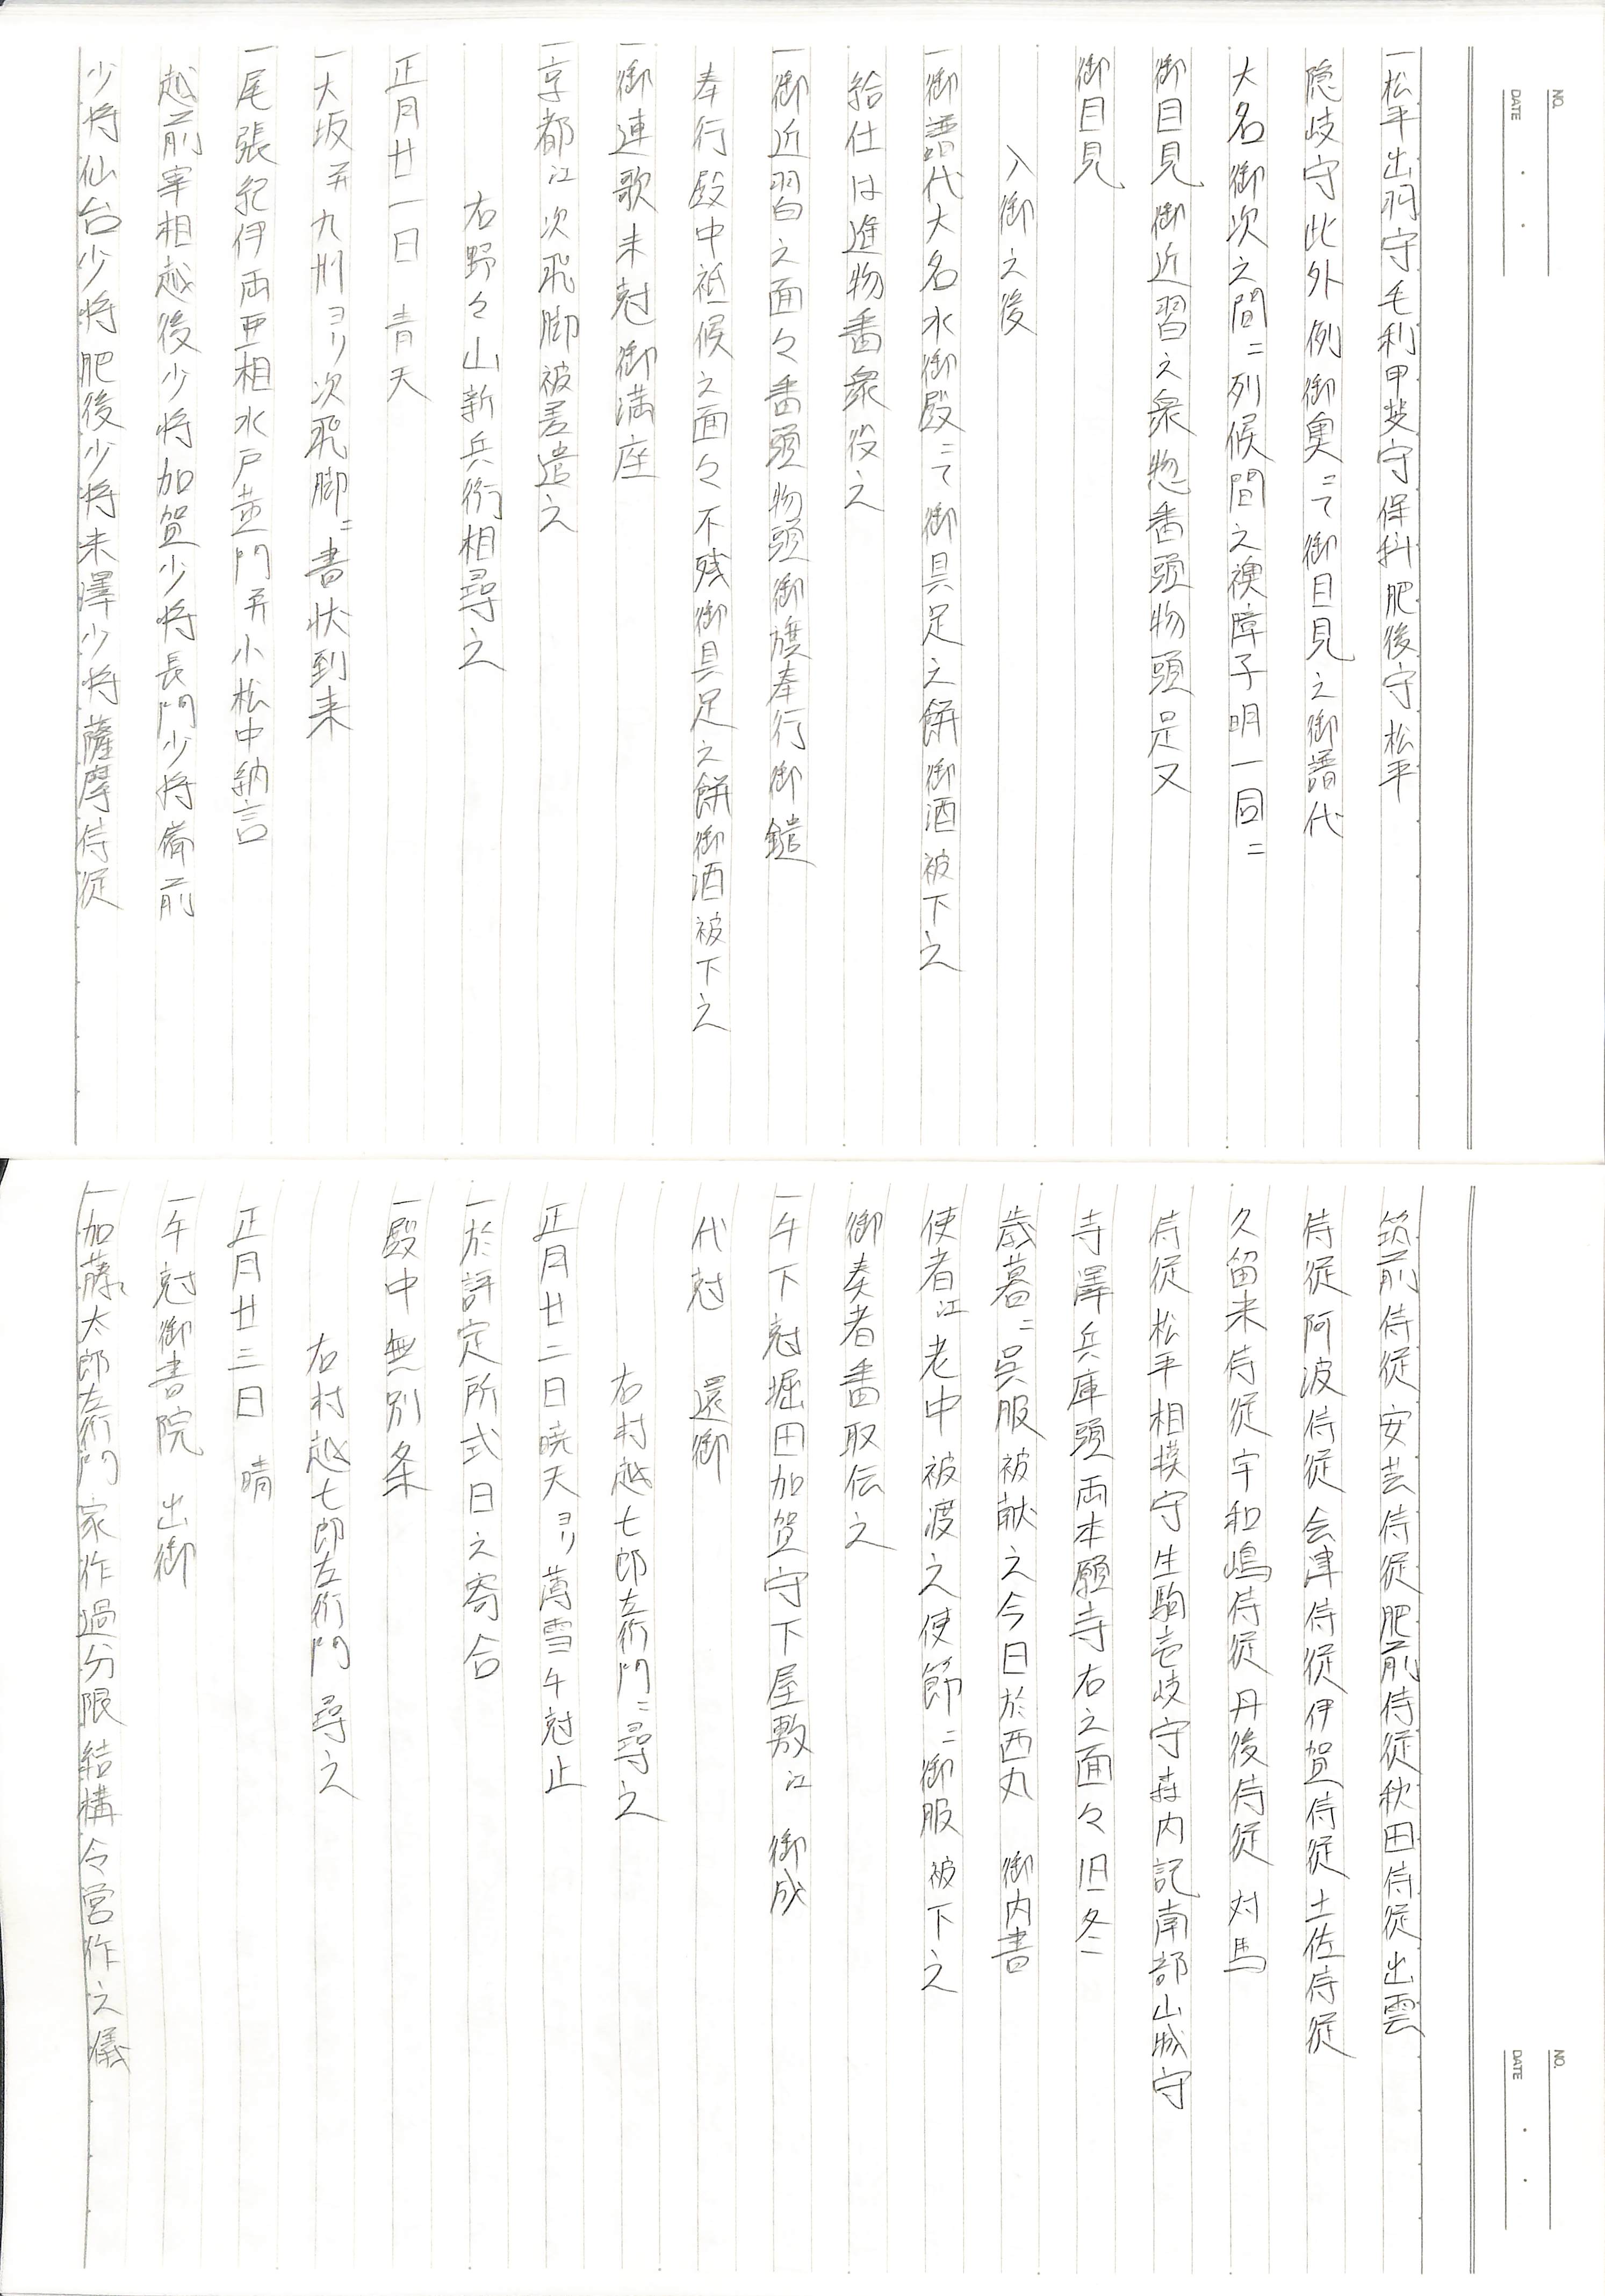 一松平出羽守毛利甲斐守保科肥後守松平
隠岐守此外例御奥ニて御目見之御譜代
大名御次之間ニ列候間之襖障子明一同ニ
御目見御近習之衆惣番頭物頭是又
御目見
入御之後
一御譜代大名水御殿ニて御具足之餅御酒被下之
給仕は進物番衆役之
一御近習之面々番頭物頭御旗奉行御鑓
奉行殿中祗候之面々不残御具足之餅御酒被下之
一御連歌未尅御満座
一京都江次飛脚被差遣之
右野々山新兵衛相尋之
正月廿一日 青天
一大坂并九州ヨリ次飛脚ニ書状到来
一尾張紀伊両亜相水戸黄門并小松中納言
越前宰相越後少将加賀少将長門少将備前
少将仙台少将肥後少将米澤少将薩摩侍従
筑前侍従安芸侍従肥前侍従秋田侍従出雲
侍従阿波侍従会津侍従伊賀侍従土佐侍従
久留米侍従宇和嶋侍従丹後侍従対馬
侍従松平相模守生駒壱岐守森内記南部山城守
寺澤兵庫頭両本願寺右之面々旧冬
歳暮ニ呉服被献之今日於西丸 御内書
使者江老中被渡之使節ニ御服被下之
御奏者番取伝之
一午下尅堀田加賀守下屋敷江 御成
代尅 還御
右村越七郎左衛門ニ尋之
正月廿二日暁天ヨリ薄雪午尅止
一於評定所式日之寄合
一殿中無別条
右村越七郎左衛門尋之
正月廿三日 晴
一午尅御書院 出御
一加藤太郎左衛門家作過分限結構令営作之儀
NO.
DATE
NO.
DATE